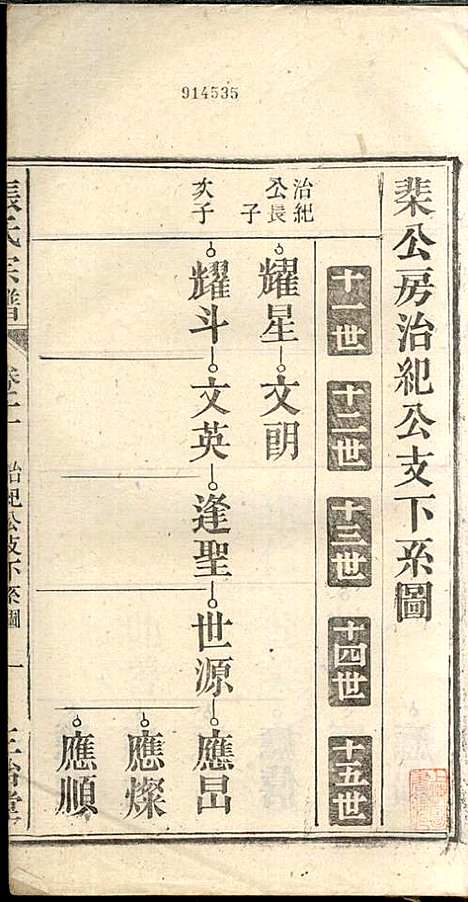 914535
棐公房治紀公支下系圖
十一世
十二世
十三世
十四世
十五世
治紀公長子
耀星
文明
次子
耀斗
文英
逢聖
世源
應昌
應燦
應順
張氏宗譜
卷之二
治紀公支下系圖
一